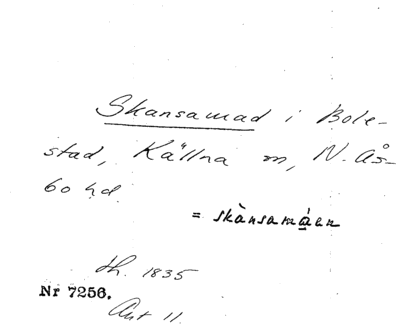 Skansamad i Bole-
stad, Källna sn, N. Ås-
bo hd.
= skànsamáen
th. 1835
Nr 7256.
Ant 11.